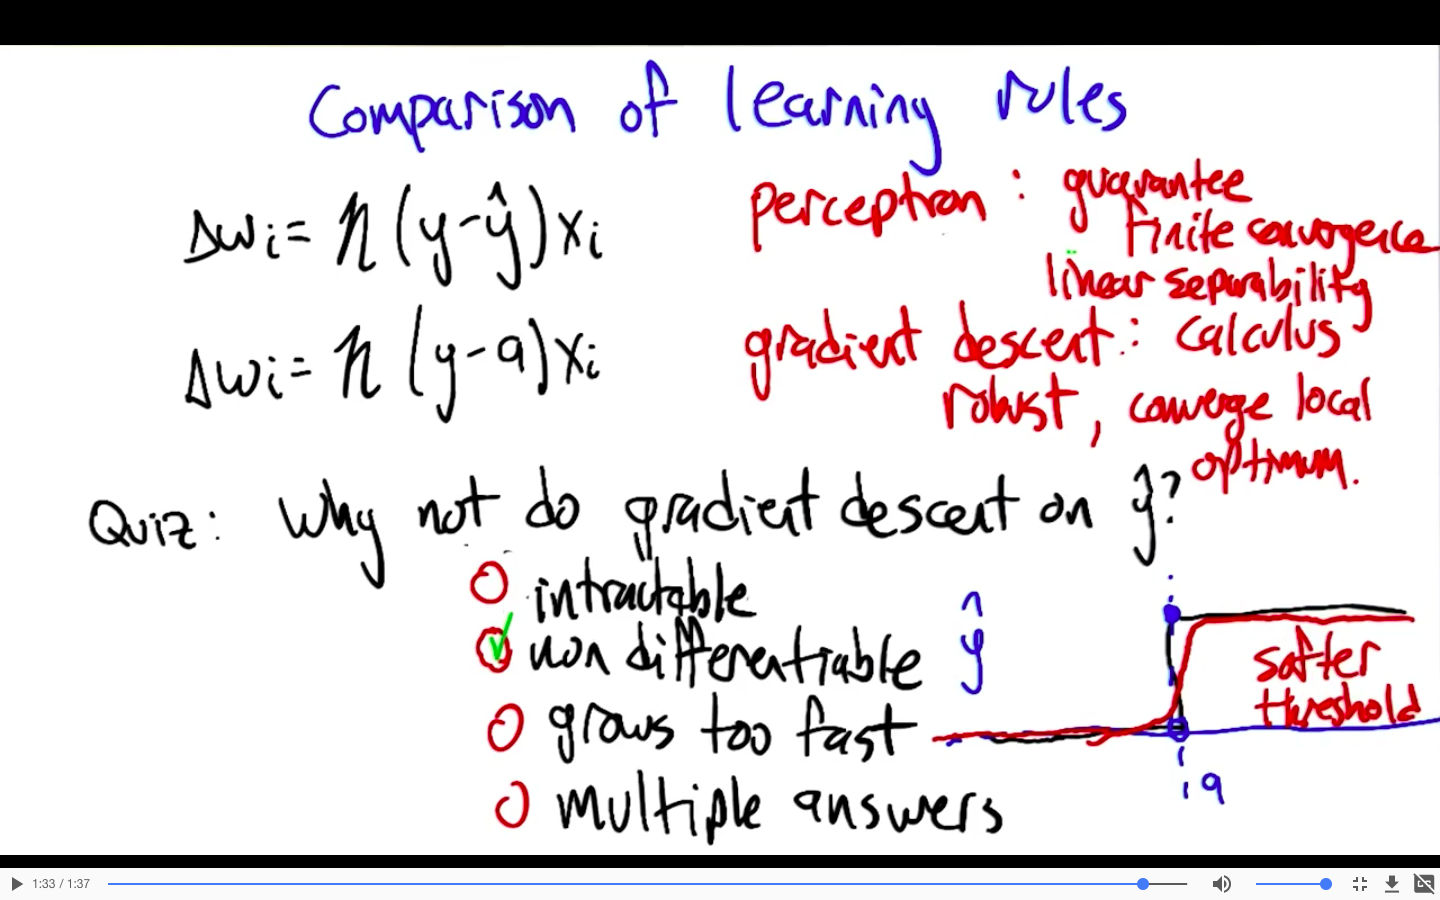 Comparison of learning rules
Δwᵢ = η (y - ŷ) xᵢ
perceptron : guarantee
finite convergence
linear separability
Δwᵢ = η (y - a) xᵢ
gradient descent : calculus
robust, converge local
optimum.
Quiz: Why not do gradient descent on ŷ?
intractable
non differentiable
grows too fast
multiple answers
ŷ
softer
threshold
a
1:33 / 1:37